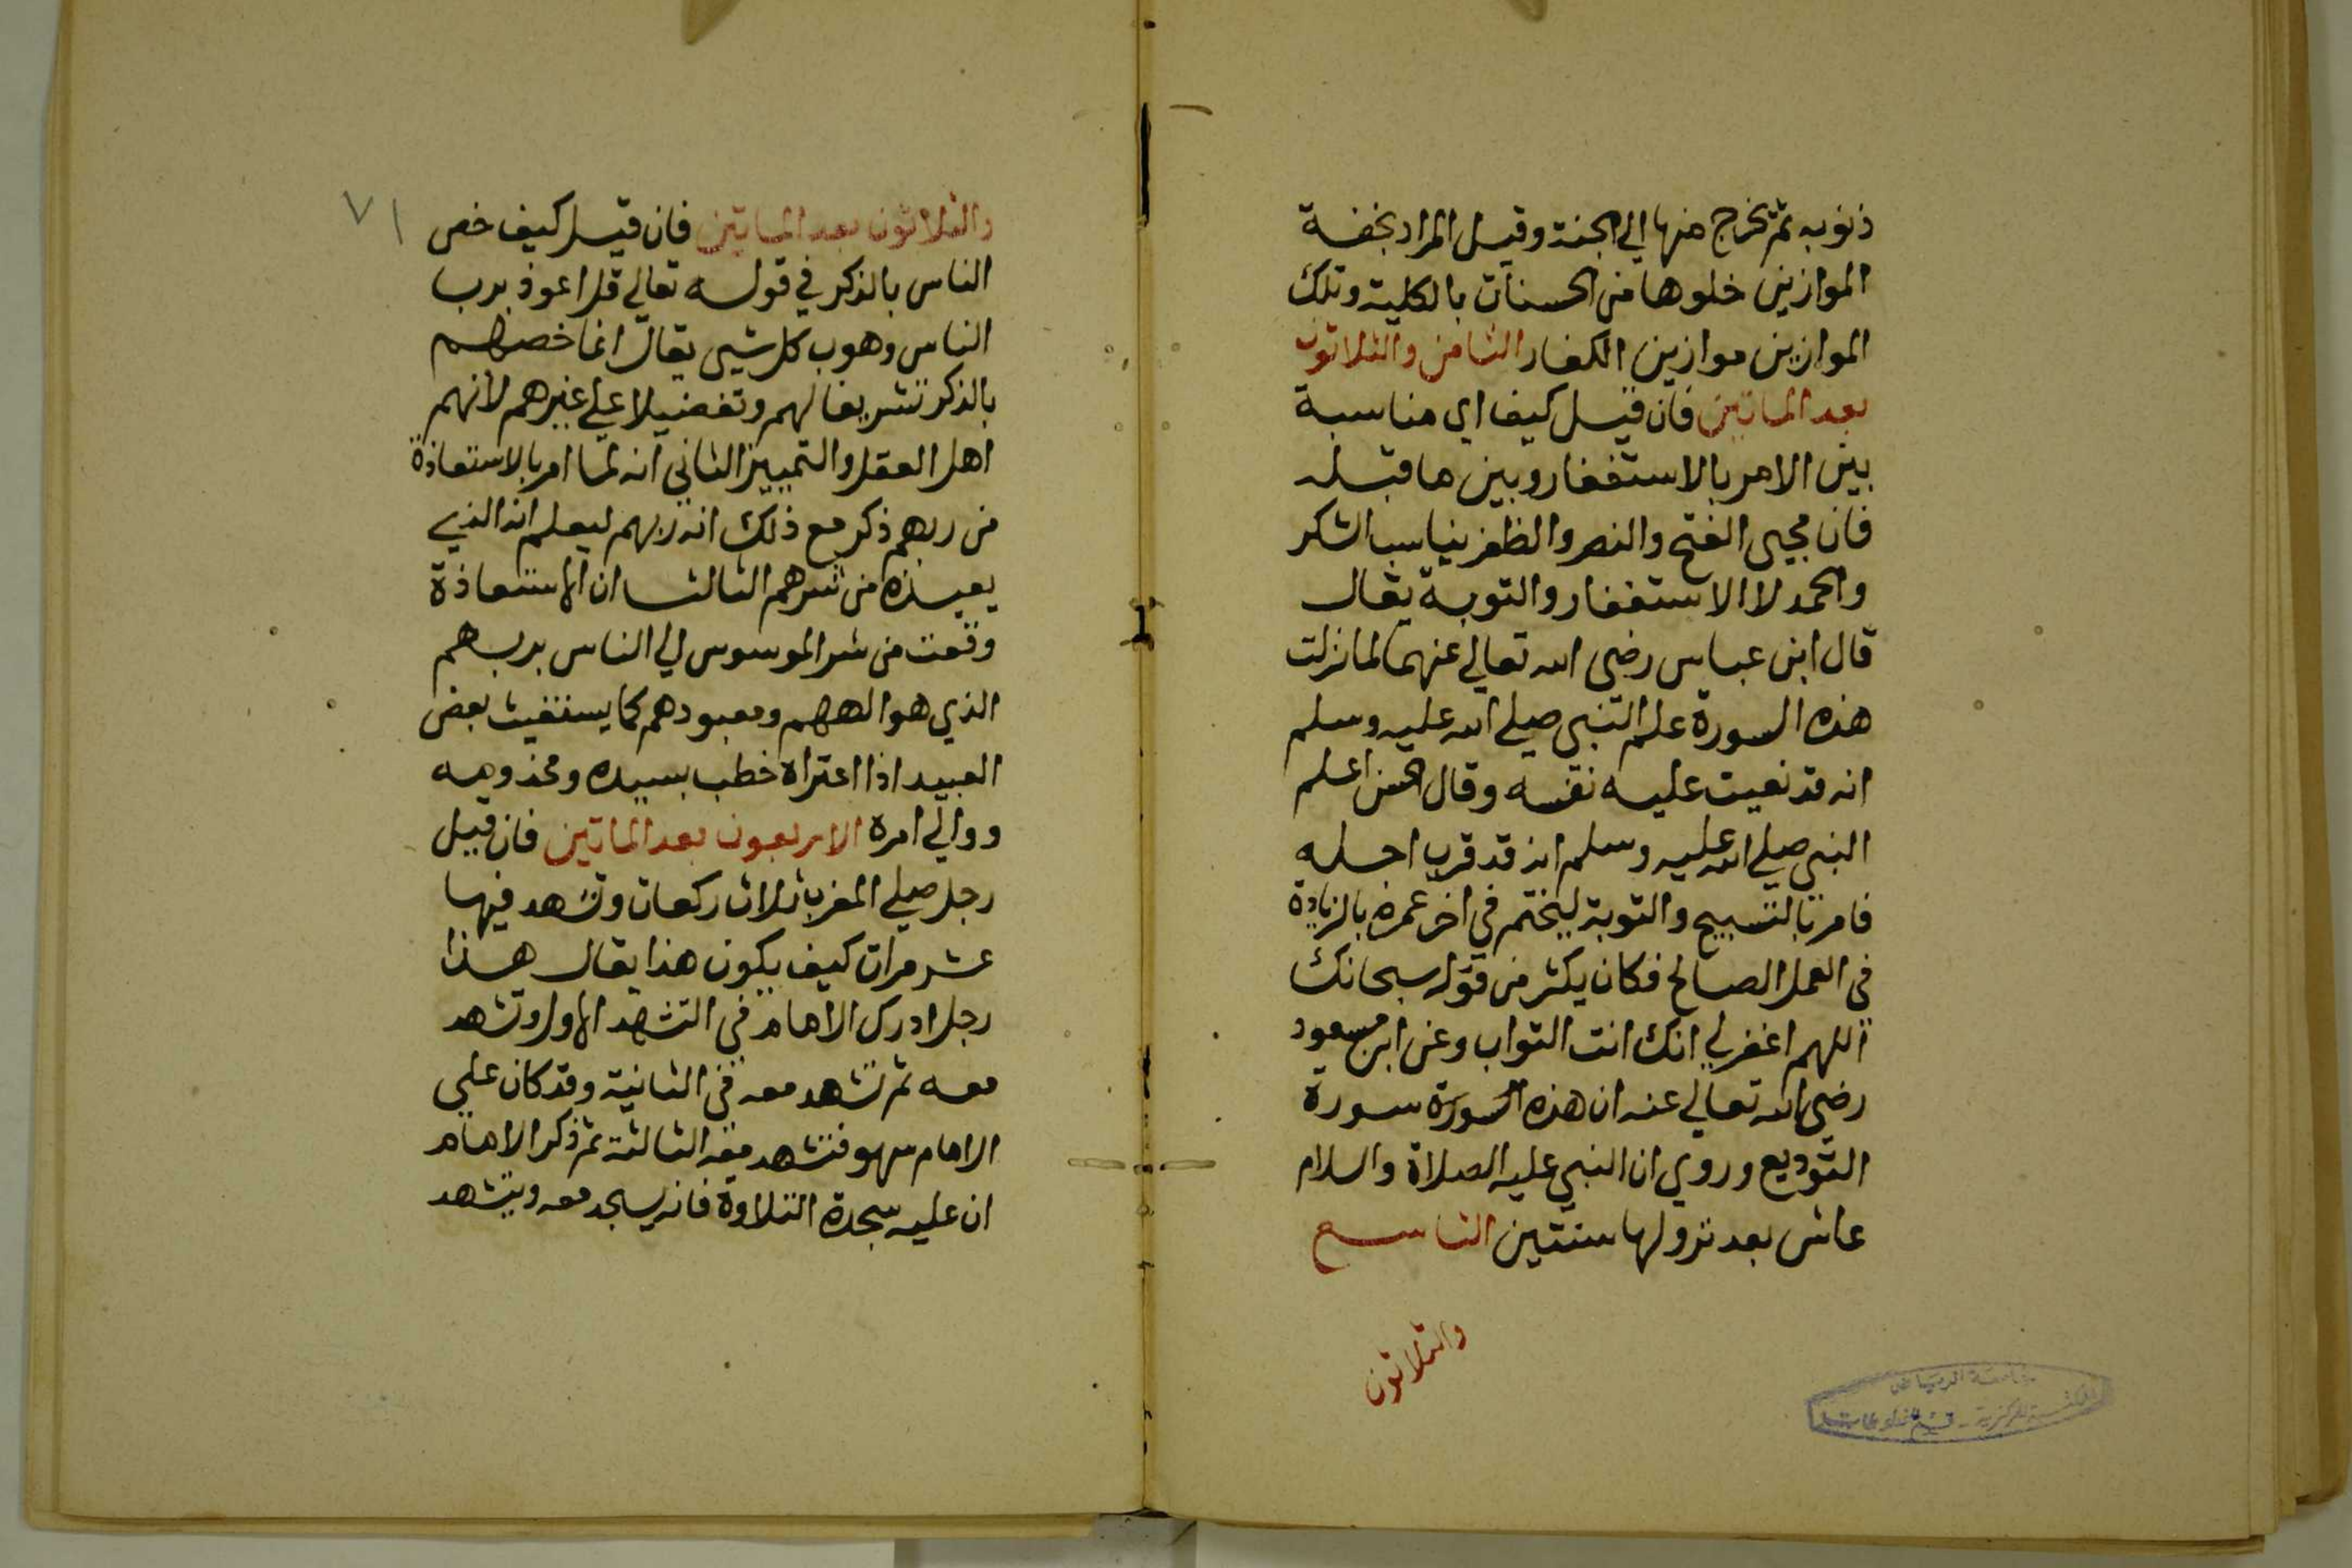 ذنوبه ثم يخرج منها الي الجنة وقيل المراد بخفة
الموازين خلوها من الحسنات بالكلية وتلك
الموازين موازين الكفار الثامن والثلاثون
بعد الماتين فان قيل كيف اي مناسبة
بين الامر بالاستغفار وبين ما قبله
فان مجيي الفتح والنصر والظفر يناسب الشكر
والحمد لا الاستغفار والتوبة يقال
قال ابن عباس رضي الله تعالي عنهما لما نزلت
هذه السورة علم النبي صلي الله عليه وسلم
انه قد نعيت عليه نفسه وقال الحسن اعلم
النبي صلي الله عليه وسلم انه قد قرب اجله
فامر بالتسبيح والتوبة ليختم في اخر عمره بالزيادة
في العمل الصالح فكان يكثر من قوله سبحانك
اللهم اغفر لي انك انت التواب وعن ابن مسعود
رضي الله تعالي عنه ان هذه السورة سورة
التوديع وروي ان النبي عليه الصلاة والسلام
عاش بعد نزولها سنتين التاسع
والثلاثون
جامعة الرياض
المكتبة المركزية - قسم المخطوطات
٧١
والثلاثون بعد الماتين فان قيل كيف خص
الناس بالذكر في قوله تعالي قل اعوذ برب
الناس وهو رب كل شيي يقال انما خصهم
بالذكر تشريفا لهم وتفضيلا علي غيرهم لانهم
اهل العقل والتمييز الثاني انه لما امر بالاستعاذة
من ربهم ذكر مع ذلك انه ربهم ليعلم انه الذي
يعيذه من شرهم الثالث ان الاستعاذة
وقعت من شر الموسوس الي الناس بربهم
الذي هو الههم ومعبودهم كما يستغيث بعض
العبيد اذا اعتراه خطب بسيده ومخدومه
ووالي امره الاربعون بعد الماتين فان قيل
رجل صلي المغرب ثلاث ركعات وتشهد فيها
عشر مرات كيف يكون هذا يقال هذا
رجل ادرك الامام في التشهد الاول وتشهد
معه ثم تشهد معه في الثانية وقد كان علي
الامام سهو فتشهد معه الثالثة ثم ذكر الامام
ان عليه سجدة التلاوة فانه يسجد معه ويتشهد